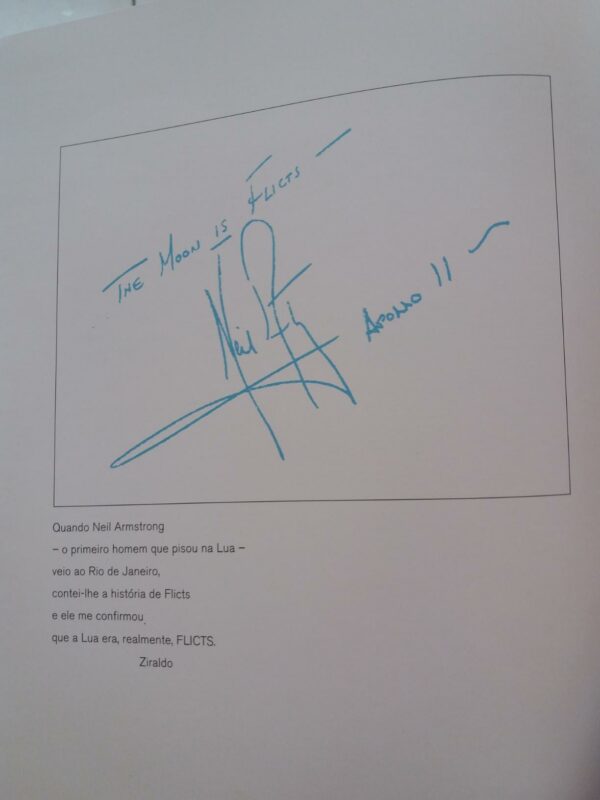 THE MOON IS FLICTS
Neil
APOLLO 11
Quando Neil Armstrong
– o primeiro homem que pisou na Lua –
veio ao Rio de Janeiro,
contei-lhe a história de Flicts
e ele me confirmou
que a Lua era, realmente, FLICTS.
Ziraldo